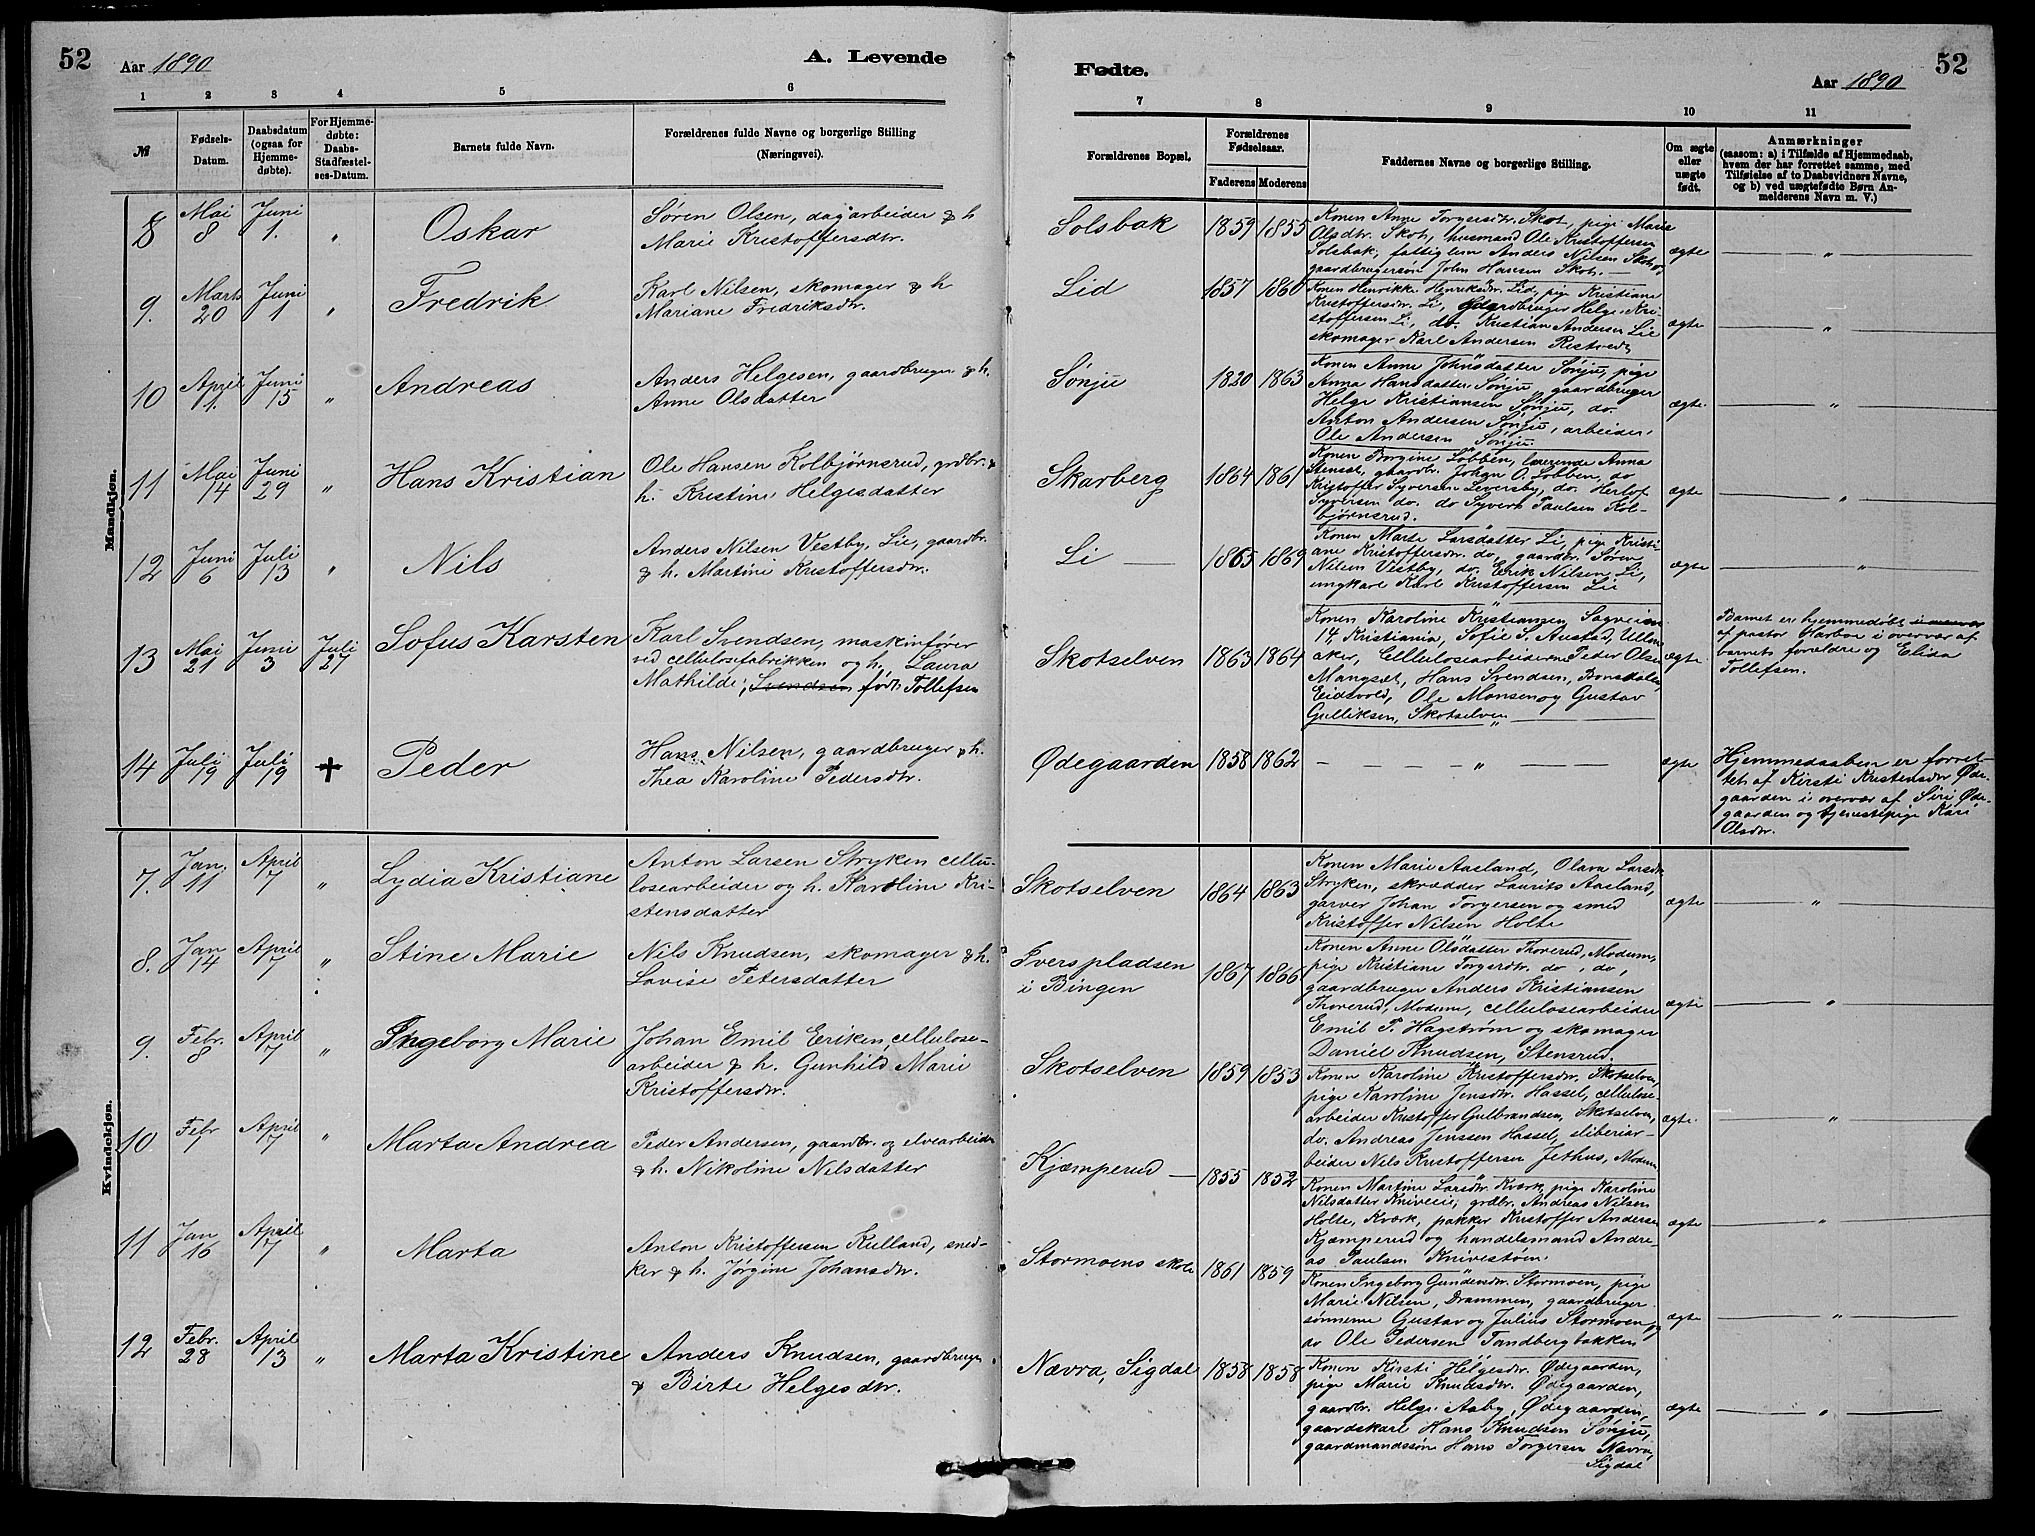 52
Aar 1890
A. Levende
1 2 3 4 5 6
№
Fødsels-
Datum.
Daabsdatum
(ogsaa for
Hjemme-
døbte).
For Hjemme-
døbte:
Daabs-
Stadfæstel-
ses-Datum.
Barnets fulde Navn.
Forældrenes fulde Navne og borgerlige Stilling
(Næringsvei).
Mandkjøn.
8 Mai 8 Juni 1. " Oskar
Søren Olsen, dagarbeider & h
Marie Kristoffersdtr.
9. Marts 20 Juni 1 " Fredrik
Karl Nilsen, skomager & h
Mariane Fredriksdtr.
10 April 1. Juni 15 " Andreas
Anders Helgesen, gaardbruger & h.
Anne Olsdatter
11 Mai 14 Juni 29 " Hans Kristian
Ole Hansen Kolbjørnsrud, grdbr. &
h. Kristine Helgesdatter
12 Juni 6 Juli 13 " Nils
Anders Nilsen Vestby, Lie, gaardbr.
& h. Martine Kristoffersdtr.
13 Mai 21 Juni 3 Juli 27 Sofus Karsten
Karl Svendsen, maskinfører
ved cellulosefabrikken og h. Laura
Mathilde, Svendsen født Tollefsen
14 Juli 19 Juli 19 + Peder
Hans Nilsen, gaardbruger & h.
Thea Karoline Pedersdtr.
Kvindekjøn.
7. Jan. 11 April 7 " Lydia Kristiane
Anton Larsen Stryken cellu-
losearbeider og h. Karoline Kri-
stensdatter
8. Jan 14 April 7 " Stine Marie
Nils Knudsen, skomager & h.
Lovise Petersdatter
9. Febr. 8 April 7 " Ingeborg Marie
Johan Emil Eriksen cellulose-
arbeider & h. Gunhild Marie
Kristoffersdtr.
10 Febr 1 April 7 " Marta Andrea
Peder Andersen, gaardbr. og elvearbeider
& h. Nikoline Nilsdatter
11 Jan 16 April 7 " Marta
Anton Kristoffersen Kulland, sned-
ker & h. Jørgine Johansdtr.
12 Febr. 28 April 13 " Marta Kristine
Anders Knudsen, gaardbruger
& Birte Helgesdtr.
Fødte.
52
Aar 1890
7 8 9 10 11
Forældrenes Bopæl.
Forældrenes
Fødselsaar.
Faderens Moderens
Faddernes Navne og borgerlige Stilling.
Om ægte
eller
uægte
født.
Anmærkninger
(saasom: a) i Tilfælde af Hjemmedaab,
hvem der har forrettet samme, med
Tilføielse af to Daabsvidners Navne,
og b) ved uægtefødte Børn An-
melderens Navn m. V.)
Solsbak 1859 1855
Konen Anne Torgersdtr. Skot, pige Marie
Olsdtr. Skot, husmand Ole Kristoffersen
Solsbak, fattiglem Anders Nilsen Skot,
gaardbrugersøn John Hansen Skot.
ægte "
Lid 1857 1860
Konen Henrikke Henriksdtr. Lid, pige Kristiane
Kristoffersdtr. Li, gaardbruger Helge Kri-
stoffersen Li, do. Kristian Andersen Lie
skomager Karl Andersen Ristvedt
ægte "
Sønju 1820 1863
Konen Anne Johnsdatter Sønju, pige
Anna Hansdatter Sønju, gaardbruger
Helge Kristiansen Sønju, do.
Anton Andersen Sønju, arbeider
Ole Andersen Sønju.
ægte. "
Skarberg 1864 1861
Konen Borgine Løbben, lærerinde Anna
Stenset, gaardbr. Johan O. Løbben, do
Kristoffer Syversen Leversby, do. Herlof
Syversen do. do Syvert Paulsen Kol-
bjørnsrud.
ægte "
Li 1865 1869
Konen Marte Larsdatter Li, pige Kristi-
ane Kristoffersdtr. do, gaardbr. Søren
Nilsen Vestby, do. Erik Nilsen Li,
ungkarl Karl Kristoffersen Lie
ægte "
Skotselven 1863 1864
Konen Karoline Kristiansen Sagveien
14 Kristiania, Sofie S. Austad, Ullern
aker, Cellulosearbeiderne Peder Olsen
Mangset, Hans Svendsen, Bonsdalen,
Eidsvold, Ole Monsen og Gustav
Gulliksen, Skotselven
ægte
Barnet er hjemmedøbt
af pastor Harboe i overvær af
barnets forældre og Elisa
Tollefsen.
Ødegaarden 1858 1862 " ægte
Hjemmedaaben er forret-
tet af Kirsti Kristensdtr Øde-
gaarden i overvær af Siri Øde-
gaarden og tjenestepige Kari
Olsdtr.
Skotselven 1864 1863
Konen Marie Aasland, Olava Larsdtr
Stryken, skrædder Laurits Aasland,
garver Johan Torgersen og smed
Kristoffer Nilsen Holte
ægte "
Iverspladsen
i Bingen 1867 1866
Konen Anne Olsdatter Thorerud, Modum,
pige Kristiane Torgersdtr. do, do,
gaardbruger Anders Kristiansen
Thorerud, Modum, cellulosearbeider
Emil P. Hagstrøm og skomager
Daniel Knudsen, Stensrud.
ægte "
Skotselven 1859 1853
Konen Karoline Kristoffersdtr. Skotselven,
pige Karoline Jensdtr. Hassel, cellulose-
arbeider Kristoffer Gulbrandsen, Skotselven,
do. Andreas Jenssen Hassel, sliberiar-
beider Nils Kristoffersen Jethus, Modum
ægte. "
Kjæmperud 1855 1852
Konen Martine Larsdtr. Kværk, pige Karoline
Nilsdatter Kniveii, grdbr. Andreas Nilsen
Holte, Kværk, pakker Kristoffer Andersen
Kjæmperud og handelsmand Andre-
as Paulsen Knivestøen.
ægte "
Stormoens skole 1861 1859
Konen Ingeborg Gundersdtr. Stormoen, pige
Marie Nilsen, Drammen, gaardbruger
sønnerne Gustav og Julius Stormoen og
av Ole Pedersen Tandbergbakken
ægte "
Nævra, Sigdal 1858 1858
Konen Kirsti Helgesdtr. Ødegaarden,
pige Marie Knudsdtr. Ødegaarden,
gaardbr. Helge Aaby, Ødegaarden,
gaardskarl Hans Knudsen Sønju,
gaardmandssøn Hans Torgersen Nævra,
Sigdal
ægte "